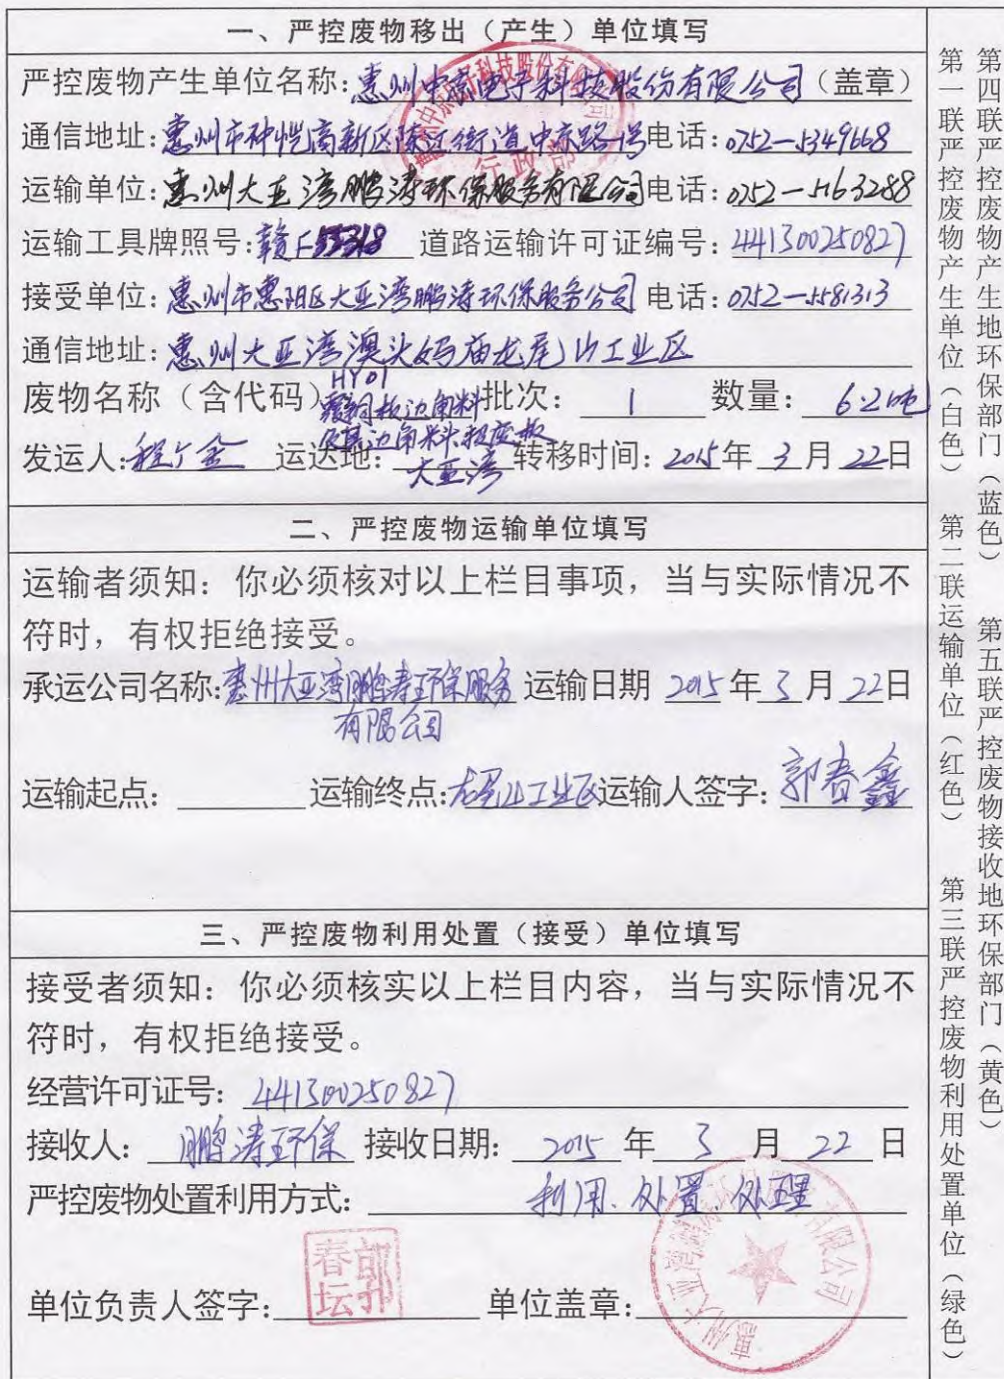 一、严控废物移出（产生）单位填写
严控废物产生单位名称：惠州中京电子科技股份有限公司（盖章）
通信地址：惠州市仲恺高新区陈江街道中京路1号电话：0752-5349668
运输单位：惠州大亚湾鹏涛环保服务有限公司电话：0752-5163288
运输工具牌照号：赣 道路运输许可证编号：441300250827
接受单位：惠州市惠阳区大亚湾鹏涛环保服务公司 电话：0752-5581313
通信地址：惠州大亚湾澳头妈庙龙尾山工业区
HY01
废物名称（含代码）覆铜板边角料批次： 1 数量： 6.2吨
及其边角料
发运人： 运送地：大亚湾 转移时间：2015年 3 月 22日
二、严控废物运输单位填写
运输者须知：你必须核对以上栏目事项，当与实际情况不
符时，有权拒绝接受。
承运公司名称：惠州大亚湾鹏涛环保服务 运输日期 2015年 3 月 22日
有限公司
运输起点： 运输终点：龙尾山工业区运输人签字：郭春鑫
三、严控废物利用处置（接受）单位填写
接受者须知：你必须核实以上栏目内容，当与实际情况不
符时，有权拒绝接受。
经营许可证号：441300250827
接收人：鹏涛环保 接收日期：2015 年 3 月 22 日
严控废物处置利用方式：利用、处置、处理
单位负责人签字： 郭春坛 单位盖章：
第一联严控废物产生单位（白色） 第二联运输单位（红色） 第三联严控废物利用处置单位（绿色）
第四联严控废物产生地环保部门（蓝色） 第五联严控废物接收地环保部门（黄色）
行政部